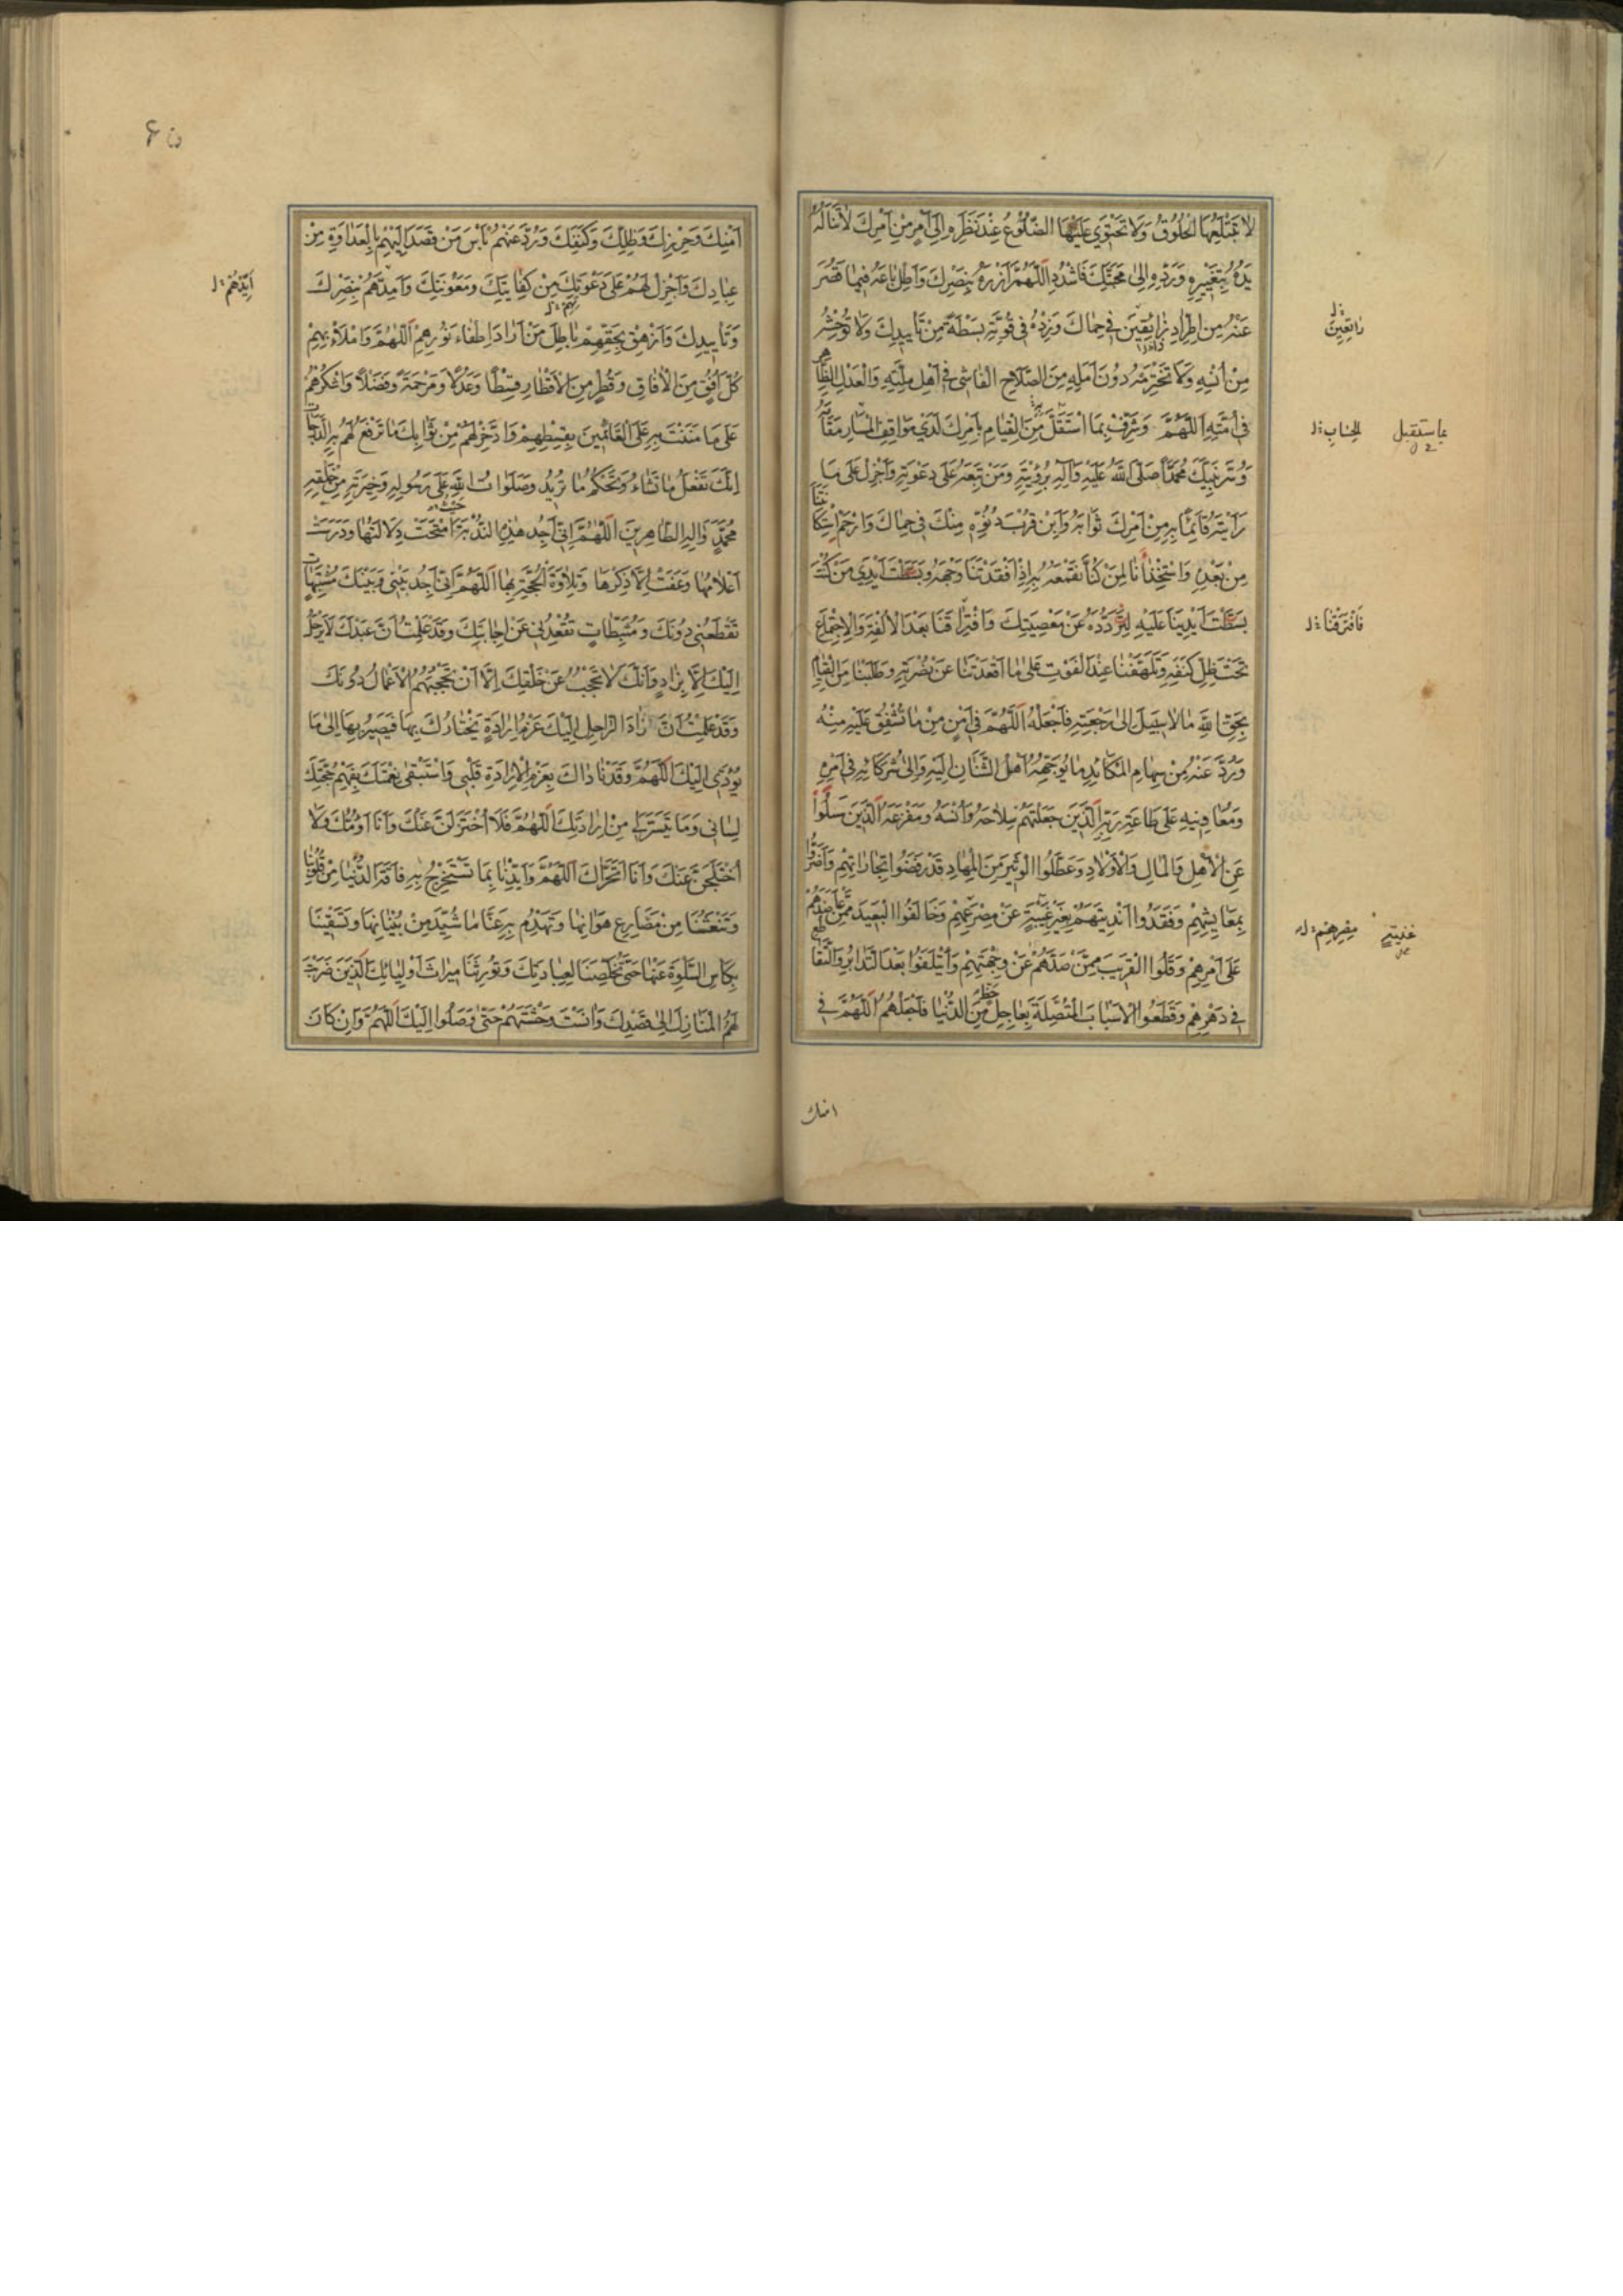 لا تَبْتَلِعُهَا الْحُلُوقُ وَلا تَحْتَوِي عَلَيْهَا الضُّلُوعُ عِنْدَ نَظَرِهِ اِلىٰ اَمْرٍ مِنْ اَمْرِكَ لا تَنالُهُ
يَدُهُ بِتَغْيِيرِهِ وَرَدِّهِ اِلىٰ مَحَبَّتِكَ فَاشْدُدِ اللّٰهُمَّ اَزْرَهُ بِنَصْرِكَ وَاَطِلْ باعَهُ فِيما قَصُرَ
عَنْهُ مِنْ اِطْرادِ رٰايعِينَ فِي حِماكَ وَزِدْهُ فِي قُوَّتِهِ بَسْطَةً مِنْ تَأْيِيدِكَ وَلا تُوحِشْهُ
مِنْ اُنْسِهِ وَلا تَخْتَرِمْهُ دُونَ اَمَلِهِ مِنَ الصَّلاحِ الْفاشِي فِي اَهْلِ مِلَّتِهِ وَالْعَدْلِ الظّاهِرِ
فِي اُمَّتِهِ اَللّٰهُمَّ وَشَرِّفْ بِمَا اسْتَقَلَّ مِنَ الْقِيامِ بِاَمْرِكَ لَدىٰ مَواقِفِ مَقامَهُ
وَسُرَّ نَبِيَّكَ مُحَمَّدًا صَلَّى اللّٰهُ عَلَيْهِ وَآلِهِ بِرُؤْيَتِهِ وَمَنْ تَبِعَهُ عَلىٰ دَعْوَتِهِ وَاَجْزِلْ عَلىٰ ما
رَاَيْتَهُ قائِمًا بِهِ مِنْ اَمْرِكَ ثَوابَهُ وَاَبِنْ قُرْبَ دُنُوِّهِ مِنْكَ فِي حِماكَ وَارْحَمِ اسْتِكانَتَنا
مِنْ بَعْدِهِ وَاسْتِخْذاءَنا لِمَنْ كُنّا نَقْمَعُهُ بِهِ اِذْ اَفْقَدْتَنا وَجْهَهُ وَبَسَطْتَ اَيْدِيَ مَنْ كُنْتَ
بَسَطْتَ اَيْدِيَنا عَلَيْهِ لِنَرُدَّهُ عَنْ مَعْصِيَتِكَ وَافْتِراقَنا بَعْدَ الْاُلْفَةِ وَالْاِجْتِماعِ
تَحْتَ ظِلِّ كَنَفِهِ وَتَلَهُّفَنا عِنْدَ الْفَوْتِ عَلىٰ ما اَقْعَدْتَنا عَنْ نُصْرَتِهِ وَطَلَبَنا مِنَ الْقِيامِ
بِحَقِّ اللّٰهِ ما لا سَبِيلَ اِلىٰ رَجْعَتِهِ فَاجْعَلْهُ اَللّٰهُمَّ فِي اَمْنٍ مِنْ ما تُشْفِقُ عَلَيْهِ مِنْهُ
وَرُدَّ عَنْهُ مِنْ سِهامِ الْمَكائِدِ ما يُوَجِّهُهُ اَهْلُ الشَّنَآنِ اِلَيْهِ وَاِلىٰ شُرَكائِهِ فِي اَمْرِهِ
وَمُعاوِنِيهِ عَلىٰ طاعَةِ رَبِّهِ الَّذِينَ جَعَلْتَهُمْ سِلاحَهُ وَاُنْسَهُ وَمَفْزَعَهُ الَّذِينَ سَلَوْا
عَنِ الْاَهْلِ وَالْمالِ وَالْاَوْلادِ وَعَطَّلُوا الْوَثِيرَ مِنَ الْمِهادِ قَدْ رَفَضُوا تِجاراتِهِمْ وَاَضَرُّوا
بِمَعايِشِهِمْ وَفَقَدُوا اَنْدِيَتَهُمْ بِغَيْرِ غَيْبَةٍ عَنْ مِصْرِهِمْ وَحالَفُوا الْبَعِيدَ مِمَّنْ عاضَدَهُمْ
عَلىٰ اَمْرِهِمْ وَقَلَوُا الْقَرِيبَ مِمَّنْ صَدَّهُمْ عَنْ وِجْهَتِهِمْ وَاْتَلَفُوا بَعْدَ التَّدابُرِ وَالتَّقاطُعِ
فِي دَهْرِهِمْ وَقَطَعُوا الْاَسْبابَ الْمُتَّصِلَةَ بِعاجِلِ مِنَ الدُّنْيا فَاجْعَلْهُمُ اللّٰهُمَّ فِي
رٰايعِينَ
بما استقبل
فَافْتَرَقْنا
امنك
اَمْنِكَ وَحِرْزِكَ وَظِلِّكَ وَكَنَفِكَ وَرُدَّ عَنْهُمْ بَأْسَ مَنْ قَصَدَ اِلَيْهِمْ بِالْعَداوَةِ مِنْ
عِبادِكَ وَاَجْزِلْ لَهُمْ عَلىٰ دَعْوَتِكَ مِنْ كِفايَتِكَ وَمَعُونَتِكَ وَاَمِدَّهُمْ بِنَصْرِكَ
وَتَأْيِيدِكَ وَاَزْهِقْ بِحَقِّهِمْ باطِلَ مَنْ اَرادَ اِطْفاءَ نُورِهِمْ اَللّٰهُمَّ وَامْلَأْ بِهِمْ
كُلَّ اُفُقٍ مِنَ الْآفاقِ وَقُطْرٍ مِنَ الْاَقْطارِ قِسْطًا وَعَدْلًا وَمَرْحَمَةً وَفَضْلًا وَاشْكُرْهُمْ
عَلىٰ ما مَنَنْتَ بِهِ عَلَى الْقائِمِينَ بِقِسْطِهِمْ وَادَّخِرْ لَهُمْ مِنْ ثَوابِكَ ما تَرْفَعُ لَهُمْ بِهِ الدَّرَجاتِ
اِنَّكَ تَفْعَلُ ما تَشاءُ وَتَحْكُمُ ما تُرِيدُ وَصَلَواتُ اللّٰهِ عَلىٰ رَسُولِهِ وَخِيَرَتِهِ مِنْ خَلْقِهِ
مُحَمَّدٍ وَآلِهِ الطّاهِرِينَ اَللّٰهُمَّ اِنِّي اَجِدُ هٰذِهِ النُّدْبَةَ امْتَحَتْ دِلالَتُها وَدَرَسَتْ
اَعْلامُها وَعَفَتْ اِلّا ذِكْرَها وَتِلاوَةَ الْحُجَّةِ بِها اَللّٰهُمَّ اِنِّي اَجِدُ بَيْنِي وَبَيْنَكَ مُشْتَبِهاتٍ
تَقْطَعُنِي دُونَكَ وَمُثَبِّطاتٍ تُقْعِدُنِي عَنْ اِجابَتِكَ وَقَدْ عَلِمْتُ اَنَّ عَبْدَكَ لا يَرْحَلُ
اِلَيْكَ اِلّا بِزادٍ وَاَنَّكَ لا تَحْجُبُ عَنْ خَلْقِكَ اِلّا اَنْ تَحْجُبَهُمُ الْاَعْمالُ دُونَكَ
وَقَدْ عَلِمْتُ اَنَّ زادَ الرّاحِلِ اِلَيْكَ عَزْمُ اِرادَةٍ يَخْتارُكَ بِها وَيَصِيرُ بِها اِلىٰ ما
يُؤَدِّي اِلَيْكَ اَللّٰهُمَّ وَقَدْ ناداكَ بِعَزْمِ الْاِرادَةِ قَلْبِي وَاسْتَبْقىٰ نِعْمَتَكَ بِفَهْمِ حُجَّتِكَ
لِسانِي وَما تَيَسَّرَ لِي مِنْ اِرادَتِكَ اَللّٰهُمَّ فَلا اُخْتَزَلَنَّ عَنْكَ وَاَنَا اَؤُمُّكَ وَلا
اُخْتَلَجَنَّ عَنْكَ وَاَنَا اَتَحَرّاكَ اَللّٰهُمَّ وَاَيِّدْنا بِما تَسْتَخْرِجُ بِهِ فاقَةَ الدُّنْيا مِنْ قُلُوبِنا
وَتَنْعَشُنا مِنْ مَصارِعِ هَوانِها وَتَهْدِمُ بِهِ عَنّا ما شُيِّدَ مِنْ بُنْيانِها وَتَسْقِينا
بِكَأْسِ السَّلْوَةِ عَنْها حَتّىٰ تُخَلِّصَنا لِعِبادَتِكَ وَتُورِثَنا مِيراثَ اَوْلِيائِكَ الَّذِينَ ضَرَبْتَ
لَهُمُ الْمَنازِلَ اِلىٰ قَصْدِكَ وَآنَسْتَ وَحْشَتَهُمْ حَتّىٰ وَصَلُوا اِلَيْكَ اَللّٰهُمَّ وَاِنْ كانَ